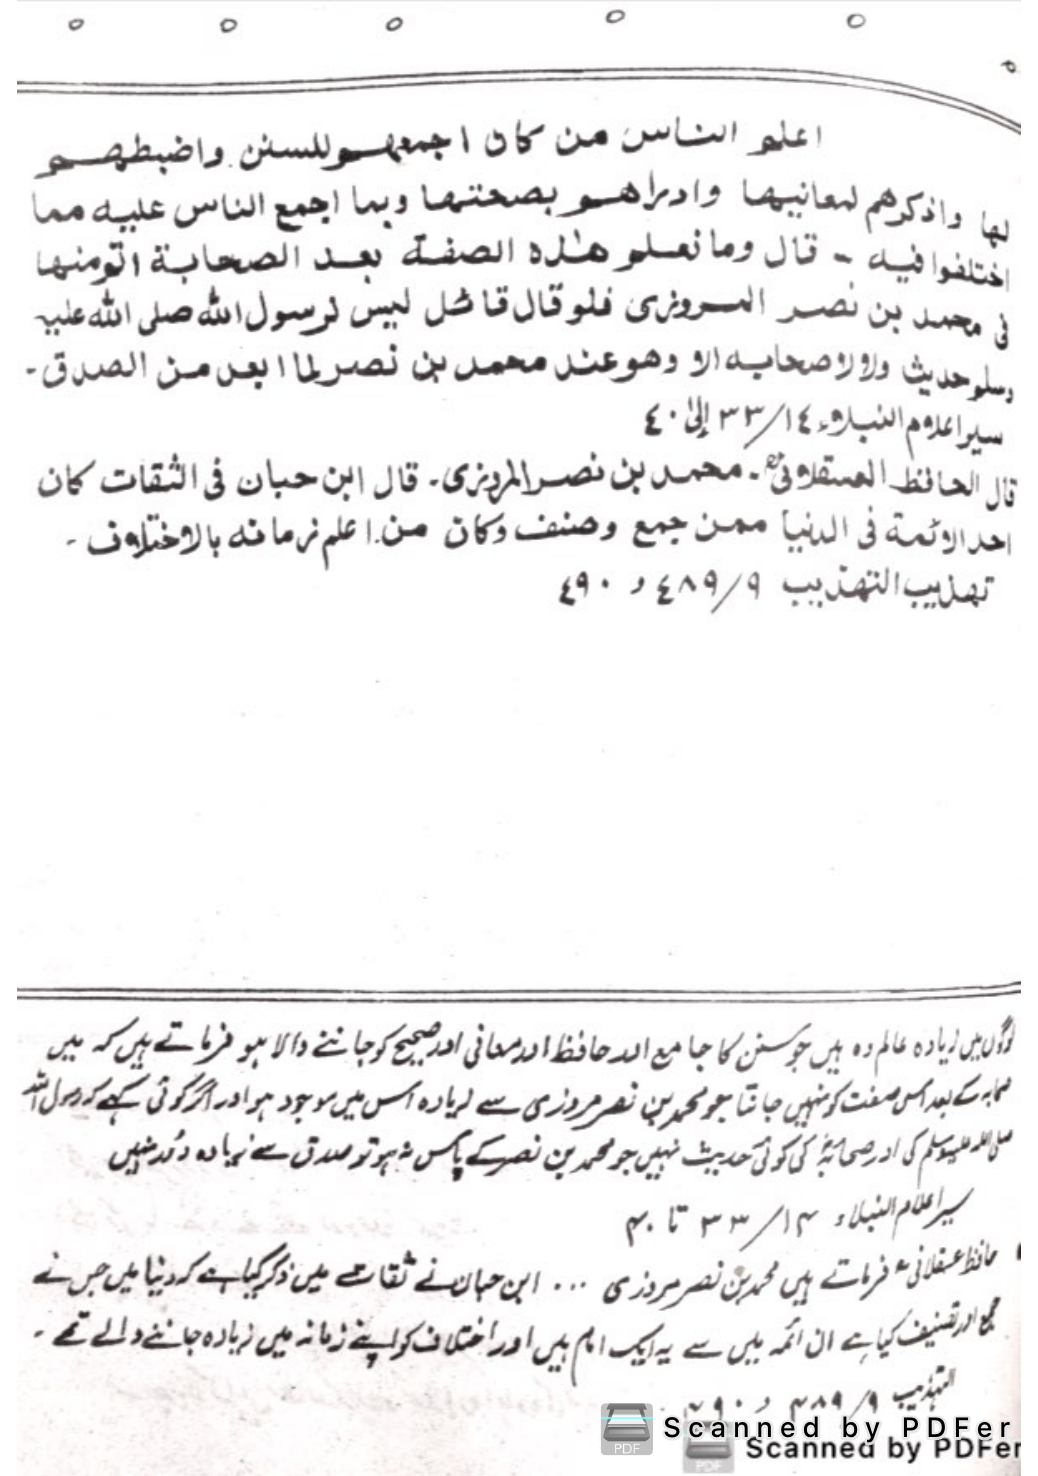 اعلم الناس من كان اجمعهم للسنن واضبطهم
لها واذكرهم لمعانيها وادراهم بصحتها وبما اجمع الناس عليه مما
اختلفوا فيه - قال وما نعلم هذه الصفة بعد الصحابة اتم منها
فى محمد بن نصر المروزى فلو قال قائل ليس لرسول الله صلى الله عليه
وسلم حديث ولا لاصحابه الا وهو عند محمد بن نصر لما ابعد من الصدق -
سير اعلام النبلاء ١٤/٣٣ إلى ٤٠
قال الحافظ العسقلانىؒ - محمد بن نصر المروزى - قال ابن حبان فى الثقات كان
احد الائمة فى الدنيا ممن جمع وصنف وكان من اعلم زمانه بالاختلاف -
تهذيب التهذيب ٩/٤٨٩ و ٤٩٠
لوگوں میں زیادہ عالم وہ ہیں جو سنن کا جامع اور حافظ اور معانی اور صحیح کو جاننے والا ہو فرماتے ہیں کہ میں
صحابہ کے بعد اس صفت کو نہیں جانتا جو محمد بن نصر مروزی سے زیادہ اس میں موجود ہو اور اگر کوئی کہے کہ رسول اللہ
صلی اللہ علیہ وسلم کی اور صحابہؓ کی کوئی حدیث نہیں جو محمد بن نصر کے پاس نہ ہو تو صدق سے زیادہ دُور نہیں
سیر اعلام النبلاء ۱۴/۳۳ تا ۴۰
حافظ عسقلانیؒ فرماتے ہیں محمد بن نصر مروزی ... ابن حبان نے ثقات میں ذکر کیا ہے کہ دنیا میں جس نے
جمع اور تصنیف کیا ہے ان ائمہ میں سے یہ ایک امام ہیں اور اختلاف کو اپنے زمانہ میں زیادہ جاننے والے تھے -
التہذیب ۹/۴۸۹ و ۴۹۰
Scanned by PDFer
Scanned by PDFer